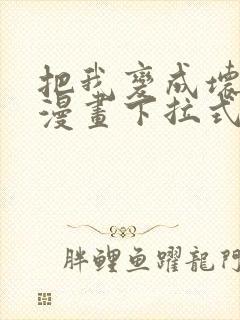 把我变成壞
漫畫下拉式
胖鲤鱼躍龍門